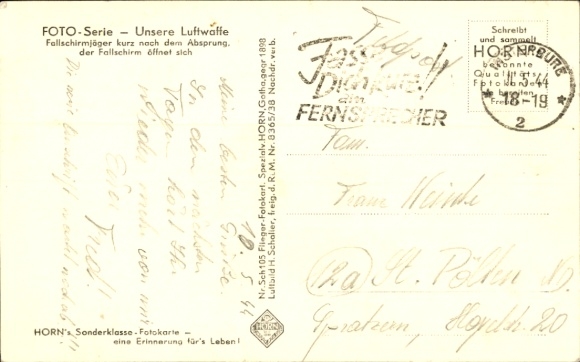 FOTO-Serie – Unsere Luftwaffe
Fallschirmjäger kurz nach dem Absprung,
der Fallschirm öffnet sich
Meine besten Grüße.
In den nächsten
Tagen hört Ihr
wieder mehr von mir
Euer Fred!
10. 5. 44
HORN's Sonderklasse-Fotokarte –
eine Erinnerung für's Leben!
HORN
Nr. Sch 105 Flieger-Fotokart. Spezialv. HORN, Gotha, gegr 1898
Luftbild H. Schaller, freig. d. R.M. Nr. 8365/38 Nachdr. verb.
Feldpost!
Fasse
Dich kurz!
am
FERNSPRECHER
Schreibt
und sammelt
HORN's
bekannte
Qualitäts
Fotokarten
sie bereiten
Freude
BURG
11.5.44
18-19
2
Fam.
Franz
(12a) St. Pölten
20